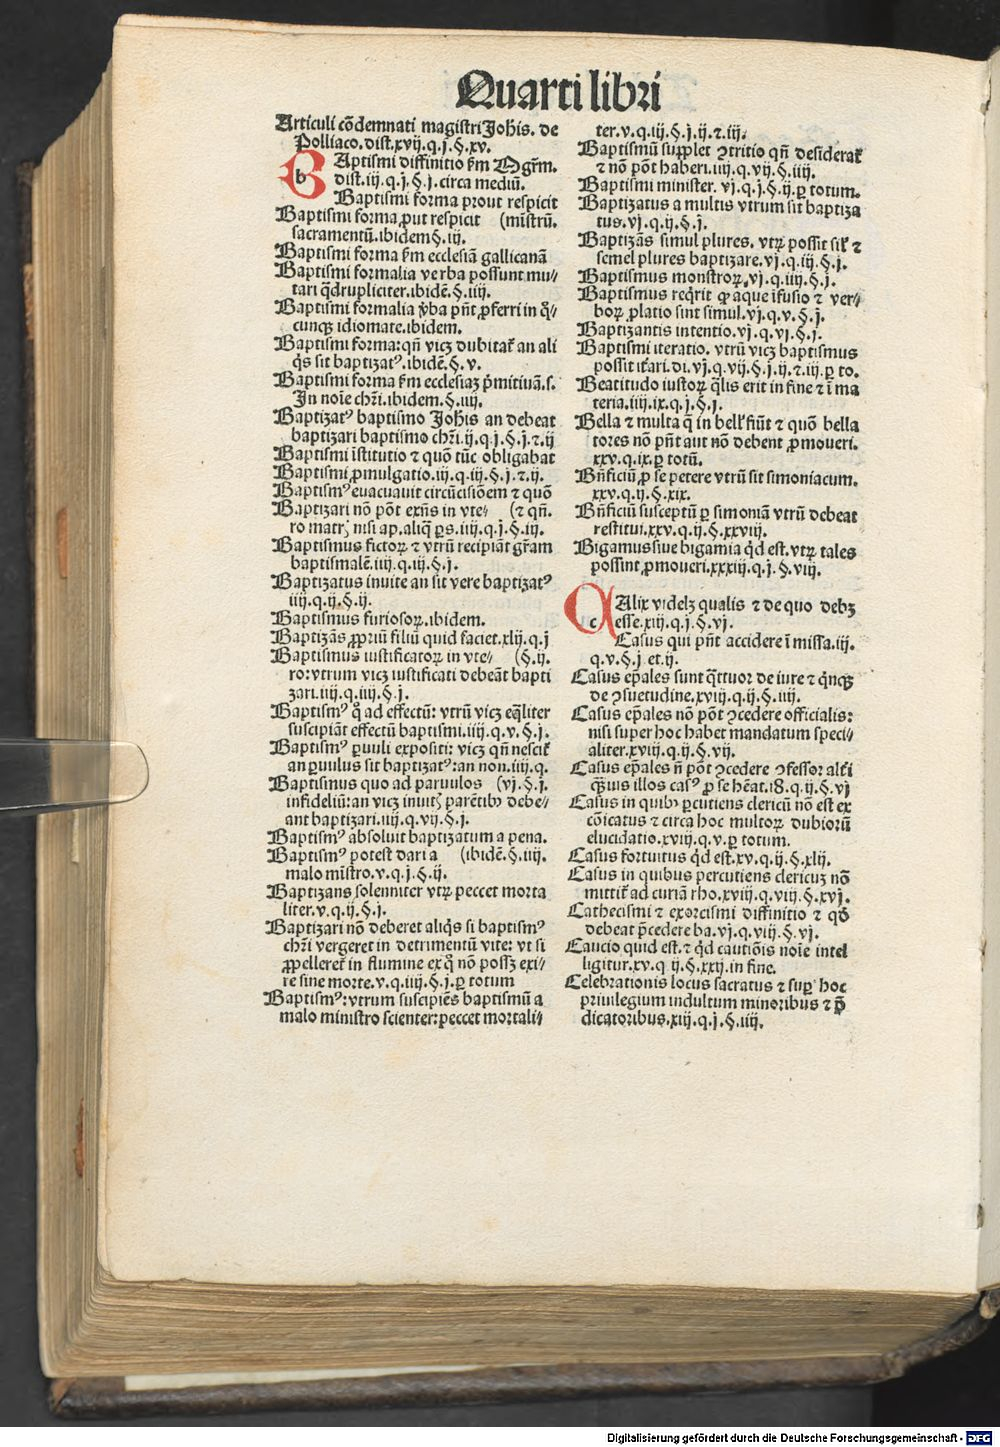 Quarti libri
Articuli cōdemnati magistri Joh̄is. de
Polliaco. dist. xvij. q. j. §. xv.
BAptismi diffinitio ẜm Mgr̄m.
b
dist. iij. q. j. §. j. circa mediū.
Baptismi forma prout respicit
Baptismi forma ꝓut respicit (mīstrū.
sacramentū. ibidem §. iij.
Baptismi forma ẜm ecclesiā gallicanā
Baptismi formalia verba possunt mu⸗
tari q̄drupliciter. ibidē. §. iiij.
Baptismi formalia v̄ba pn̄t ꝓferri in q̊⸗
cunqꝫ idiomate. ibidem.
Baptismi forma: qn̄ vicꝫ dubitat᷑ an ali
q̄s sit baptizatꝰ. ibidē. §. v.
Baptismi forma ẜm ecclesiaꝫ p̄mitiuā. s.
In noīe chr̄i. ibidem. §. iiij.
Baptizatꝰ baptismo Joh̄is an debeat
baptizari baptismo chr̄i. ij. q. j. §. j. ⁊. ij
Baptismi īstitutio ⁊ quō tūc obligabat
Baptismi ꝓmulgatio. iij. q. iij. §. j. ⁊. ij.
Baptismꝰ euacuauit circūcisiōem ⁊ quō
Baptizari nō pōt exn̄s in vte⸗ (⁊ qn̄.
ro matrꝭ nisi ap. aliq̄ ꝑs. iiij. q. j. §. iij.
Baptismus fictoꝝ ⁊ vtrū recipiāt gr̄am
baptismalē. iiij. q. iij. §. j.
Baptizatus inuite an sit vere baptizatꝰ
iiij. q. ij. §. ij.
Baptismus furiosoꝝ. ibidem.
Baptizās ꝓpriū filiū quid faciet. xlij. q. j
Baptismus iustificatoꝝ in vte⸗ (§. ij.
ro: vtrum vicꝫ iustificati debeāt bapti
zari. iiij. q. iiij. §. j.
Baptismꝰ q̊ ad effectū: vtrū vicꝫ eq̄liter
suscipiāt effectū baptismi. iiij. q. v. §. j.
Baptismꝰ ꝑuuli expositi: vicꝫ qn̄ nescit᷑
an ꝑuulus sit baptizatꝰ: an non. iiij. q.
Baptismus quo ad paruulos (vj. §. j.
infideliū: an vicꝫ inuitꝭ parētibꝰ debe⸗
ant baptizari. iiij. q. vij. §. j.
Baptismꝰ absoluit baptizatum a pena.
Baptismꝰ potest dari a (ibidē. §. iiij.
malo mīstro. v. q. j. §. ij.
Baptizans solenniter vtꝝ peccet morta
liter. v. q. ij. §. j.
Baptizari nō deberet aliq̄s si baptismꝰ
chr̄i vergeret in detrimentū vite: vt si
ꝓpelleret᷑ in flumine ex q̊ nō possꝫ exi⸗
re sine morte. v. q. iiij. §. j. ꝑ totum
Baptismꝰ: vtrum suscipiēs baptismū a
malo ministro scienter: peccet mortali⸗
ter. v. q. iij. §. j. ij. ⁊. iij.
Baptismū supplet ꝯtritio qn̄ desiderat᷑
⁊ nō pōt haberi. iiij. q. vij. §. iiij.
Baptismi minister. vj. q. j. §. ij. ꝑ totum.
Baptizatus a multis vtrum sit baptiza
tus. vj. q. ij. §. j.
Baptizās simul plures. vtꝝ possit sil̄r ⁊
semel plures baptizare. vj. q. iij. §. j.
Baptismus monstroꝝ. vj. q. iiij. §. j.
Baptismus reqrit ꝙ aque īfusio ⁊ ver⸗
boꝝ ꝓlatio sint simul. vj. q. v. §. j.
Baptizantis intentio. vj. q. vj. §. j.
Baptismi iteratio. vtrū vicꝫ baptismus
possit it̄ari. di. vj. q. vij. §. j. ij. ⁊. iij. ꝑ to.
Beatitudo iustoꝝ q̄lis erit in fine ⁊ ī ma
teria. iiij. ix. q. j. §. j.
Bella ⁊ multa q̄ in bell̄ fiūt ⁊ quō bella
tores nō pn̄t aut nō debent ꝓmoueri.
xxv. q. ix. ꝑ totū.
Bn̄ficiū ꝓ se petere vtrū sit simoniacum.
xxv. q. ij. §. xix.
Bn̄ficiū susceptū ꝑ simoniā vtrū debeat
restitui. xxv. q. ij. §. xxviij.
Bigamus siue bigamia qd̄ est. vtꝝ tales
possint ꝓmoueri. xxxiij. q. j. §. viij.
CAlix videlꝫ qualis ⁊ de quo debꝫ
c esse. xiij. q. j. §. vj.
Casus qui pn̄t accidere ī missa. iij.
q. v. §. j et. ij.
Casus ep̄ales sunt q̄ttuor de iure ⁊ qn̄qꝫ
de ꝯsuetudine. xviij. q. ij. §. iiij.
Casus ep̄ales nō pōt ꝯcedere officialis:
nisi super hoc habet mandatum speci⸗
aliter. xviij. q. ij. §. vij.
Casus ep̄ales n̄ pōt ꝯcedere ꝯfessor alt̄i
q̄uis illos casꝰ ꝓ se hēat. 18. q. ij. §. vj
Casus in quibꝰ ꝑcutiens clericū nō est ex
cōicatus ⁊ circa hoc multoꝝ dubioꝝ
elucidatio. xviij. q. v. ꝑ totum.
Casus fortuitus qd̄ est. xv. q. ij. §. xlij.
Casus in quibus percutiens clericuꝫ nō
mittit᷑ ad curiā rho. xviij. q. viij. §. xvj.
Cathecismi ⁊ exorcismi diffinitio ⁊ qd̄
debeat p̄cedere ba. vj. q. viij. §. vj.
Caucio quid est. ⁊ qd̄ cautiōis noīe intel
ligitur. xv. q ij. §. xxij. in fine.
Celebrationis locus sacratus ⁊ suꝑ hoc
priuilegium indultum minoribus ⁊ p̄
dicatoribus. xiij. q. j. §. iiij.
Digitalisierung gefördert durch die Deutsche Forschungsgemeinschaft - DFG